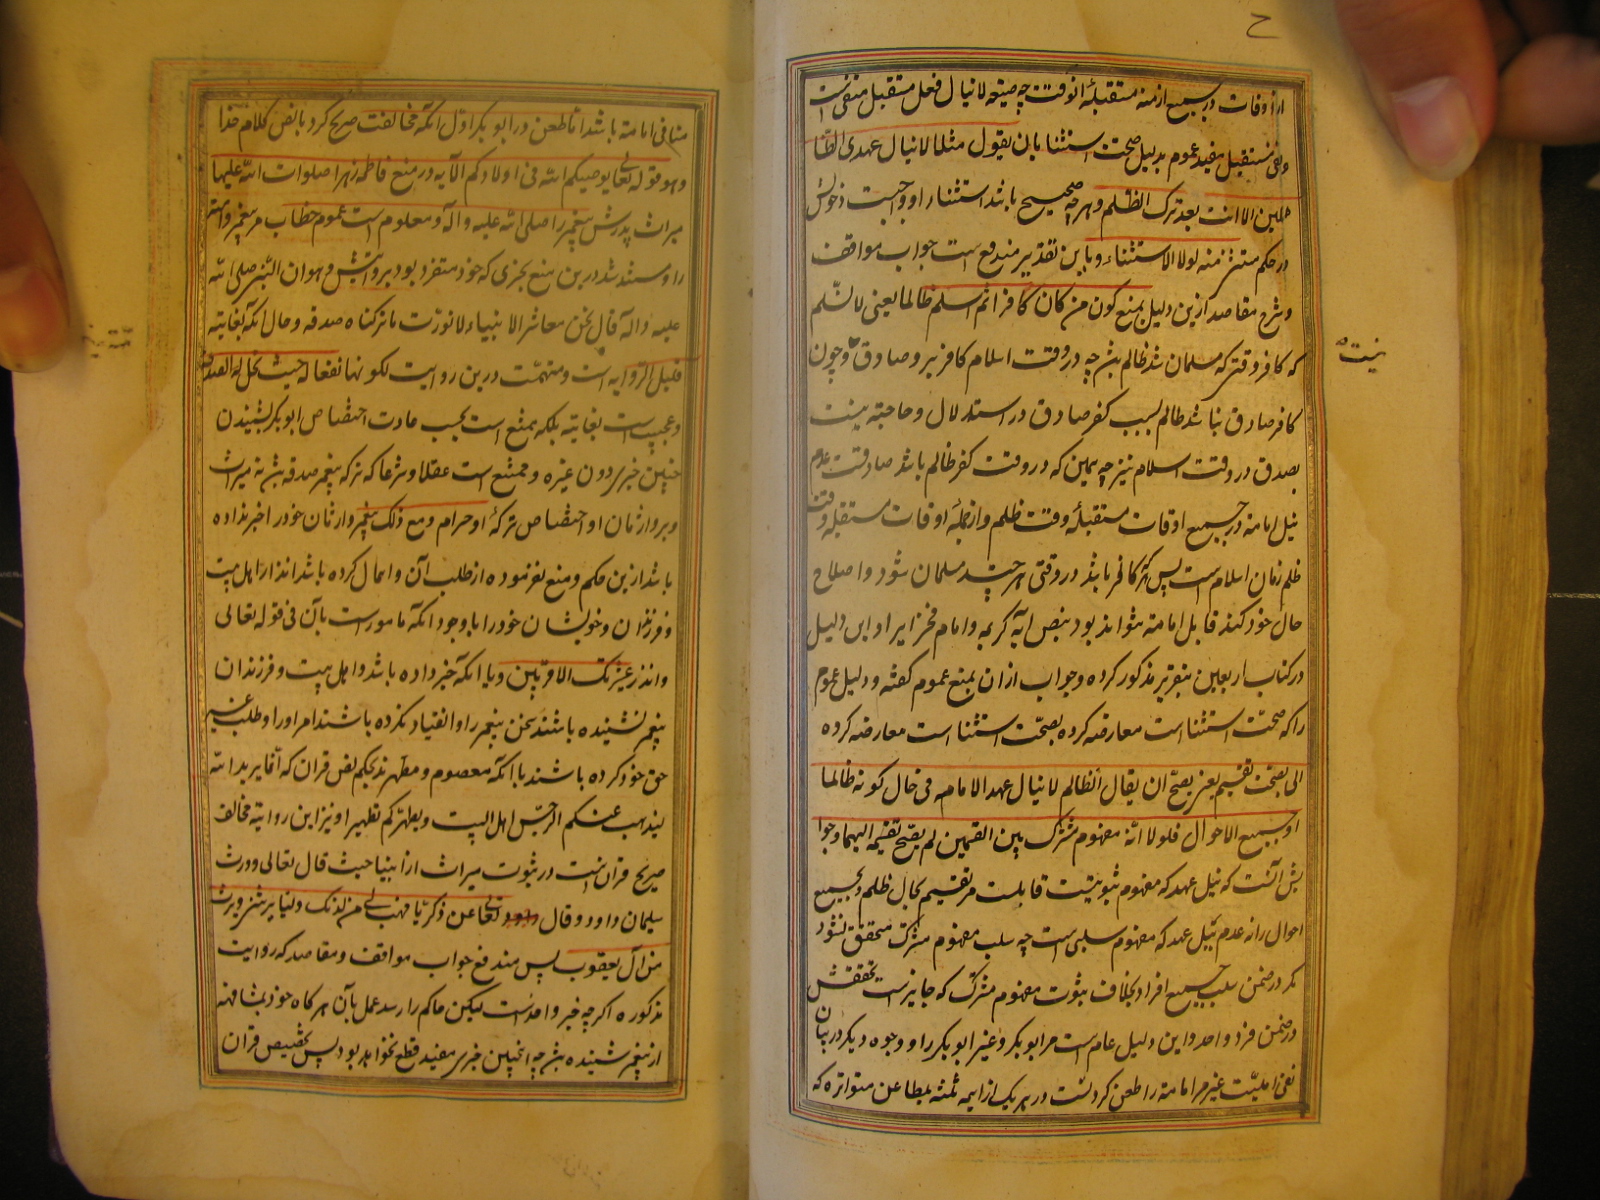 ح
از اوقات در جمیع ازمنه مستقبلهٔ انوقت چه صیغه لا ینال فعل مستقبل منفی است
و نفی مستقبل مفید عموم بدلیل صحت استثنا بان یقول مثلا لا ینال عهدی الظا
لمین الا انت بعد ترک الظلم و هر چه صحیح باشد استثناء او واجبست دخولش
در حکم مستثنی منه لولا الاستثناء و باین تقدیر مندفع است جواب مواقف
و شرح مقاصد ازین دلیل بمنع کون من کان کافرا ثم اسلم ظالما یعنی لا نسلم
که کافر وقتی که مسلمان شد ظالم بشر چه در وقت اسلام کافر بر و صادق و چون
نیست
کافر صادق نباشد ظالم بسبب کفر صادق در استدلال و حاجته نیست
بصدق در وقت اسلام نیز چه همین که در وقت کفر ظالم باشد صادقست عدم
نیل امامة در جمیع اوقات مستقبلهٔ وقت ظلم و از جملهٔ اوقات مستقبله وقت
ظلم زمان اسلام است پس هر که کافر باشد در وقتی هر چند مسلمان شود و اصلاح
حال خود کند قابل امامة نتواند بود بنص ایه کریمه و امام فخر ایراد این دلیل
در کتاب اربعین بتقریر مذکور کرده و جواب ازان بمنع عموم گفته و دلیل عموم
را که صحّت استثنا است معارضه کرده بصحّت استثنا است معارضه کرده
الی بصحّت تقسیم یعنی یصحّ ان یقال الظالم لا ینال عهد الامامه فی حال کونه ظالما
او جمیع الاحوال فلولا انّه مفهوم مشترک بین القسمین لم یصحّ تقسیمه الیهما و جوا
بش آنست که نیل عهد که مفهوم ثبوتیست قابلست مر تقسیم بحال ظلم و بجمیع
احوال را نه عدم نیل عهد که مفهوم سلبی است چه سلب مفهوم مشترک متحقق نشود
مگر در ضمن سلب جمیع افراد بخلاف ثبوت مفهوم مشترک که جایز است تحققش
در ضمن فرد واحد و این دلیل عام است مر ابو بکر و غیر ابو بکر را و وجوه دیگر در بیان
نفی اهلیّت غیر مر امامة را طعن کردنست در هر یک از ایمه ثلثه بمطاعن متواتره که
منافی امامة باشد اما طعن در ابو بکر اوّل انکه مخالفت صریح کرد با نص کلام خدا
و هو قوله تعالی یوصیکم الله فی اولادکم الآیه در منع فاطمه زهرا صلوات الله علیها
میراث پدرش پیغمبر را صلی الله علیه و آله و معلوم است عموم خطاب مر پیغمبر و امت
را و مستند شد درین منع بخبری که خود متفرد بود بروایتش و هو ان النبی صلی الله
علیه و اله قال نحن معاشر الانبیاء لا نورث ما ترکناه صدقه و حال انکه بغایة
قلیل الروایه است و متهمّست درین روایت لکونها نفعا له حیث تحل له الصدقه
و عجیب است بغایة بلکه ممتنع است بحسب عادت اختصاص ابو بکر بشنیدن
چنین خبری دون غیره و ممتنع است عقلا و شرعا که ترکه پیغمبر صدقه بشر نه میراث
و بر وارثان او اختصاص ترکهٔ او حرام و مع ذلک پیغمبر وارثان خود را خبر نداده
باشد ازین حکم و منع نفرموده از طلب آن و اهمال کرده باشد انذار اهل بیت
و فرزندان و خویشان خود را با وجود انکه مامور است بآن فی قوله تعالی
و انذر عشیرتک الاقربین و یا انکه خبر داده باشد و اهل بیت و فرزندان
پیغمبر نشنیده باشند سخن پیغمبر را و انقیاد نکرده باشند امر او را و طلب غیر
حق خود کرده باشند با انکه معصوم و مطهرند بحکم نص قران که انّما یرید الله
لیذهب عنکم الرجس اهل البیت و یطهّرکم تطهیرا و نیز این روایة مخالف
صریح قران است در ثبوت میراث از انبیا حیث قال تعالی و ورث
سلیمان داود و قال تعالی عن ذکریّا فهب لی من لدنک ولیا یرثنی و یرث
من ال یعقوب پس مندفع جواب مواقف و مقاصد که روایت
مذکوره اگر چه خبر واحد است لیکن حاکم را رسد عمل بآن هر گاه خود بمشافهه
از پیغمبر شنیده بشر چه انچنین خبری مفید قطع نخواهد بود پس تخصیص قران